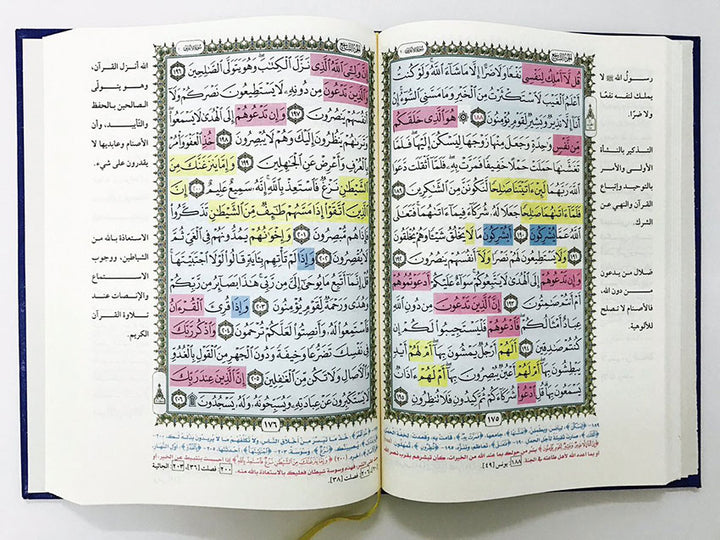 قُل لَّا أَمْلِكُ لِنَفْسِى نَفْعًا وَلَا ضَرًّا إِلَّا مَا شَآءَ ٱللَّهُ وَلَوْ كُنتُ
أَعْلَمُ ٱلْغَيْبَ لَٱسْتَكْثَرْتُ مِنَ ٱلْخَيْرِ وَمَا مَسَّنِىَ ٱلسُّوٓءُ إِنْ
أَنَا۠ إِلَّا نَذِيرٌ وَبَشِيرٌ لِّقَوْمٍ يُؤْمِنُونَ ١٨٨ ۞ هُوَ ٱلَّذِى خَلَقَكُم
مِّن نَّفْسٍ وَٰحِدَةٍ وَجَعَلَ مِنْهَا زَوْجَهَا لِيَسْكُنَ إِلَيْهَا فَلَمَّا
تَغَشَّىٰهَا حَمَلَتْ حَمْلًا خَفِيفًا فَمَرَّتْ بِهِۦ فَلَمَّآ أَثْقَلَت دَّعَوَا
ٱللَّهَ رَبَّهُمَا لَئِنْ ءَاتَيْتَنَا صَٰلِحًا لَّنَكُونَنَّ مِنَ ٱلشَّٰكِرِينَ ١٨٩
فَلَمَّآ ءَاتَىٰهُمَا صَٰلِحًا جَعَلَا لَهُۥ شُرَكَآءَ فِيمَآ ءَاتَىٰهُمَا فَتَعَٰلَى
ٱللَّهُ عَمَّا يُشْرِكُونَ ١٩٠ أَيُشْرِكُونَ مَا لَا يَخْلُقُ شَيْـًٔا وَهُمْ يُخْلَقُونَ
١٩١ وَلَا يَسْتَطِيعُونَ لَهُمْ نَصْرًا وَلَآ أَنفُسَهُمْ يَنصُرُونَ ١٩٢
وَإِن تَدْعُوهُمْ إِلَى ٱلْهُدَىٰ لَا يَتَّبِعُوكُمْ سَوَآءٌ عَلَيْكُمْ أَدَعَوْتُمُوهُمْ
أَمْ أَنتُمْ صَٰمِتُونَ ١٩٣ إِنَّ ٱلَّذِينَ تَدْعُونَ مِن دُونِ ٱللَّهِ
عِبَادٌ أَمْثَالُكُمْ فَٱدْعُوهُمْ فَلْيَسْتَجِيبُوا۟ لَكُمْ إِن
كُنتُمْ صَٰدِقِينَ ١٩٤ أَلَهُمْ أَرْجُلٌ يَمْشُونَ بِهَآ أَمْ لَهُمْ أَيْدٍ
يَبْطِشُونَ بِهَآ أَمْ لَهُمْ أَعْيُنٌ يُبْصِرُونَ بِهَآ أَمْ لَهُمْ ءَاذَانٌ
يَسْمَعُونَ بِهَا قُلِ ٱدْعُوا۟ شُرَكَآءَكُمْ ثُمَّ كِيدُونِ فَلَا تُنظِرُونِ ١٩٥
١٧٥
رسولُ الله ﷺ لا
يملك لنفسه نفعًا
ولا ضرًا.
التذكير بالنشأة
الأولى والأمر
بالتوحيد واتباع
القرآن والنهي عن
الشرك.
ضلال من يدعون
من دون الله،
فالأصنام لا تصلح
للألوهية.
إِنَّ وَلِـِّۧىَ ٱللَّهُ ٱلَّذِى نَزَّلَ ٱلْكِتَٰبَ وَهُوَ يَتَوَلَّى ٱلصَّٰلِحِينَ ١٩٦
وَٱلَّذِينَ تَدْعُونَ مِن دُونِهِۦ لَا يَسْتَطِيعُونَ نَصْرَكُمْ وَلَآ
أَنفُسَهُمْ يَنصُرُونَ ١٩٧ وَإِن تَدْعُوهُمْ إِلَى ٱلْهُدَىٰ لَا يَسْمَعُوا۟
وَتَرَىٰهُمْ يَنظُرُونَ إِلَيْكَ وَهُمْ لَا يُبْصِرُونَ ١٩٨ خُذِ ٱلْعَفْوَ وَأْمُرْ
بِٱلْعُرْفِ وَأَعْرِضْ عَنِ ٱلْجَٰهِلِينَ ١٩٩ وَإِمَّا يَنزَغَنَّكَ مِنَ
ٱلشَّيْطَٰنِ نَزْغٌ فَٱسْتَعِذْ بِٱللَّهِ إِنَّهُۥ سَمِيعٌ عَلِيمٌ ٢٠٠ إِنَّ
ٱلَّذِينَ ٱتَّقَوْا۟ إِذَا مَسَّهُمْ طَٰٓئِفٌ مِّنَ ٱلشَّيْطَٰنِ تَذَكَّرُوا۟
فَإِذَا هُم مُّبْصِرُونَ ٢٠١ وَإِخْوَٰنُهُمْ يَمُدُّونَهُمْ فِى ٱلْغَىِّ ثُمَّ
لَا يُقْصِرُونَ ٢٠٢ وَإِذَا لَمْ تَأْتِهِم بِـَٔايَةٍ قَالُوا۟ لَوْلَا ٱجْتَبَيْتَهَا
قُلْ إِنَّمَآ أَتَّبِعُ مَا يُوحَىٰٓ إِلَىَّ مِن رَّبِّى هَٰذَا بَصَآئِرُ مِن رَّبِّكُمْ
وَهُدًى وَرَحْمَةٌ لِّقَوْمٍ يُؤْمِنُونَ ٢٠٣ وَإِذَا قُرِئَ ٱلْقُرْءَانُ
فَٱسْتَمِعُوا۟ لَهُۥ وَأَنصِتُوا۟ لَعَلَّكُمْ تُرْحَمُونَ ٢٠٤ وَٱذْكُر رَّبَّكَ
فِى نَفْسِكَ تَضَرُّعًا وَخِيفَةً وَدُونَ ٱلْجَهْرِ مِنَ ٱلْقَوْلِ بِٱلْغُدُوِّ
وَٱلْءَاصَالِ وَلَا تَكُن مِّنَ ٱلْغَٰفِلِينَ ٢٠٥ إِنَّ ٱلَّذِينَ عِندَ رَبِّكَ
لَا يَسْتَكْبِرُونَ عَنْ عِبَادَتِهِۦ وَيُسَبِّحُونَهُۥ وَلَهُۥ يَسْجُدُونَ ۩ ٢٠٦
١٧٦
الله أنزل القرآن،
وهو يتولى
الصالحين بالحفظ
والتأييد، وأن
الأصنام وعابديها لا
يقدرون على شيء.
الاستعاذة بالله من
الشياطين، ووجوب
الاستماع
والإنصات عند
تلاوة القرآن
الكريم.